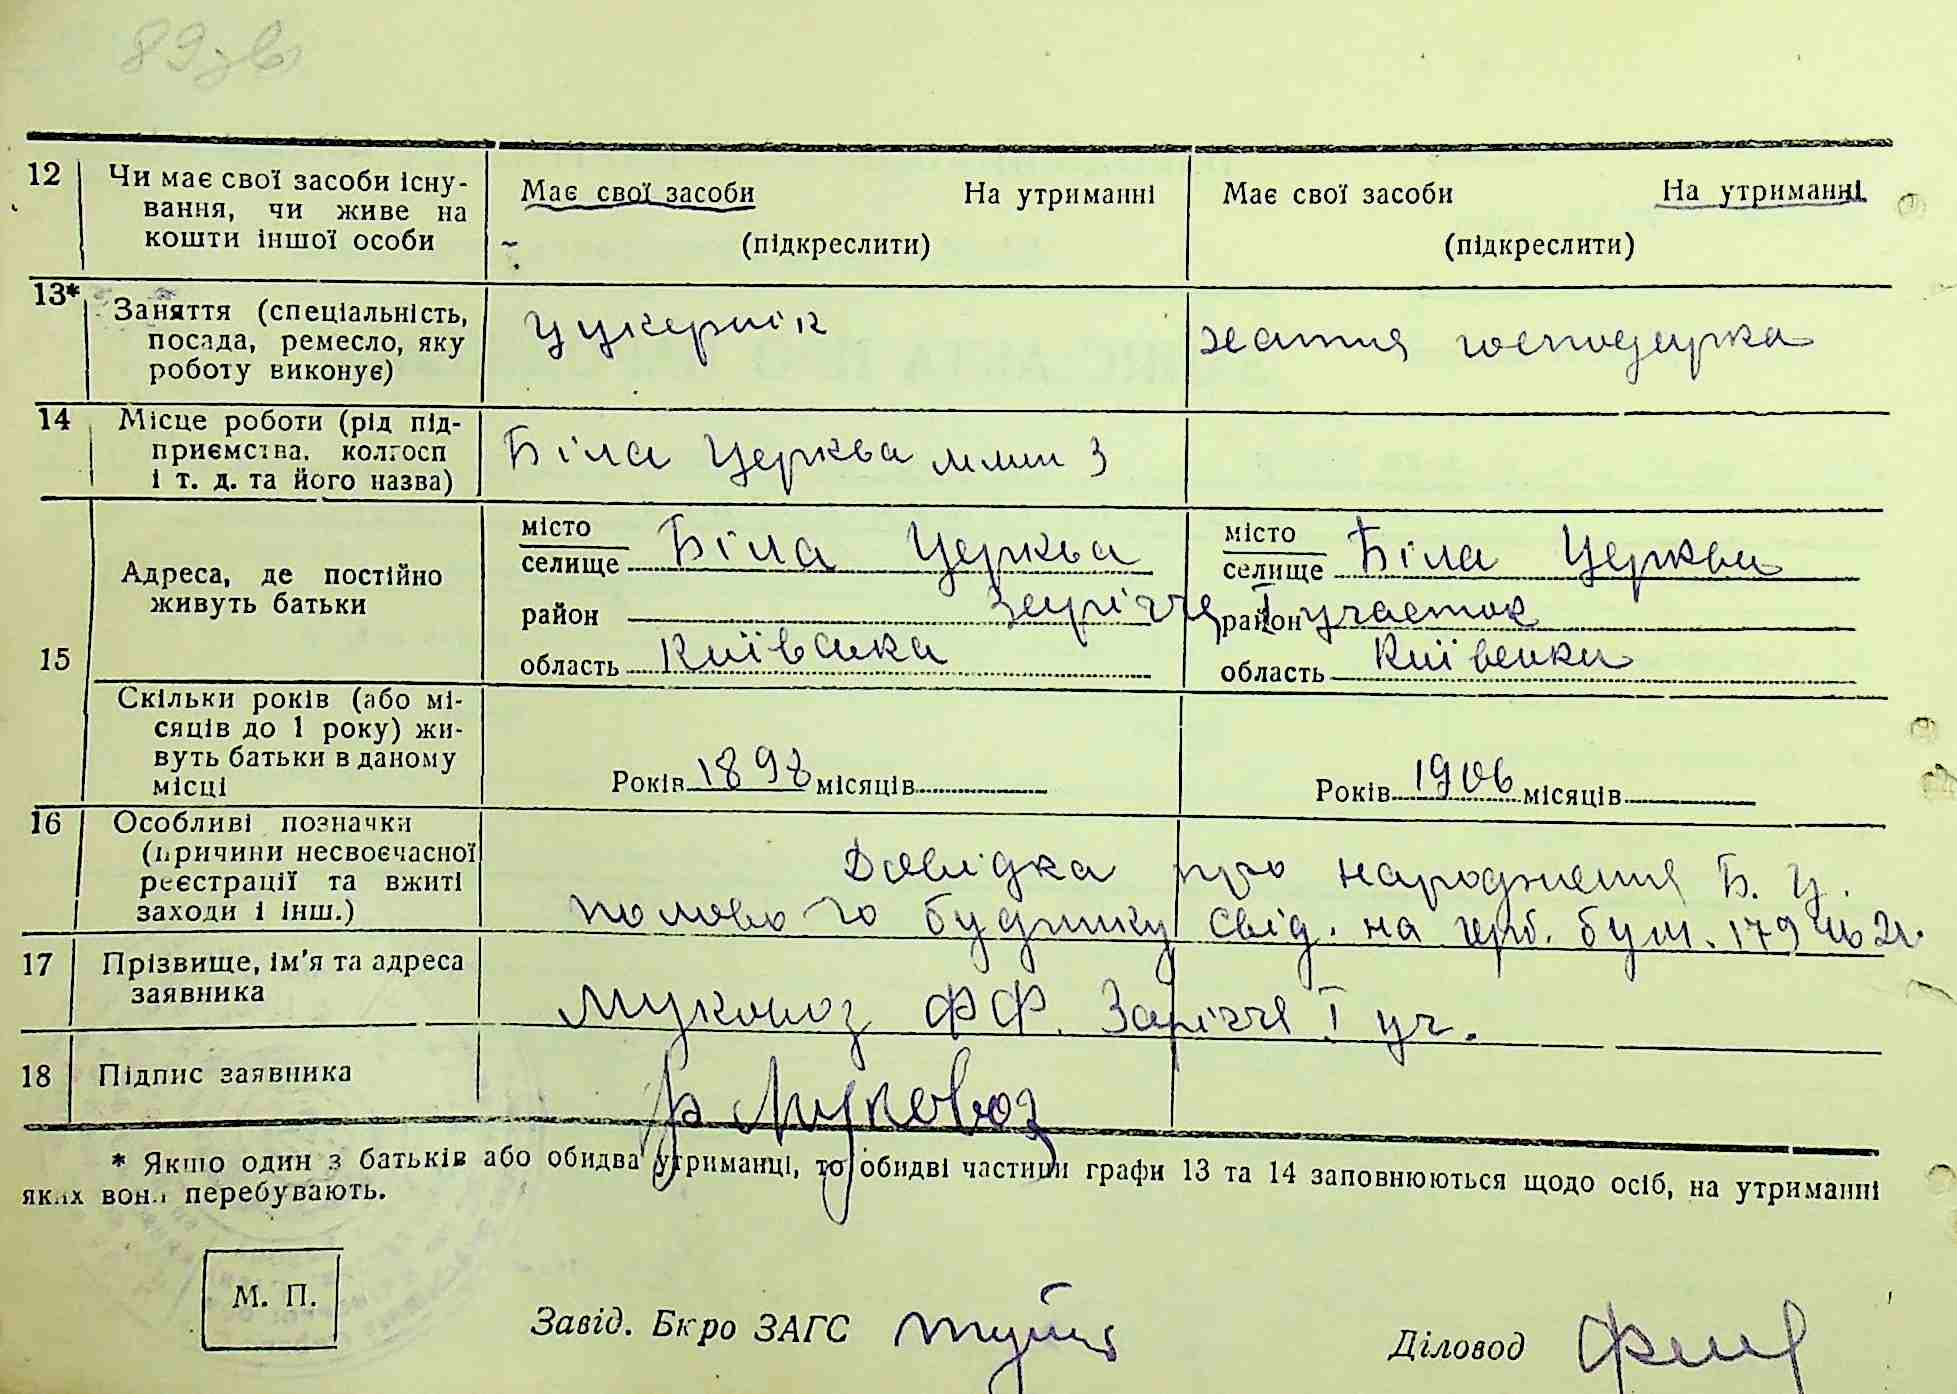 89зв
12 Чи має свої засоби існу- Має свої засоби На утриманні Має свої засоби На утриманні
вання, чи живе на
кошти іншої особи (підкреслити) (підкреслити)
13* Заняття (спеціальність, цукернік хатня господарка
посада, ремесло, яку
роботу виконує)
14 Місце роботи (рід під- Біла Церква млин 3
приємства, колгосп
і т. д. та його назва)
15 Адреса, де постійно живуть батьки
місто
селище Біла Церква місто
селище Біла Церква
район Заріччя район І участок
область Київська область Київська
Скільки років (або мі-
сяців до 1 року) жи-
вуть батьки в даному
місці Років 1898 місяців Років 1906 місяців
16 Особливі позначки
(причини несвоєчасної Довідка про народження Б. Ц.
реєстрації та вжиті
заходи і інш.) полового будинку свід. на герб. бум. 179
17 Прізвище, ім'я та адреса
заявника Муковоз ФФ. Заріччя І уч.
18 Підпис заявника Муковоз
* Якщо один з батьків або обидва утриманці, то обидві частини графи 13 та 14 заповнюються щодо осіб, на утриманні
яких вони перебувають.
М. П.
Завід. Бюро ЗАГС
Діловод